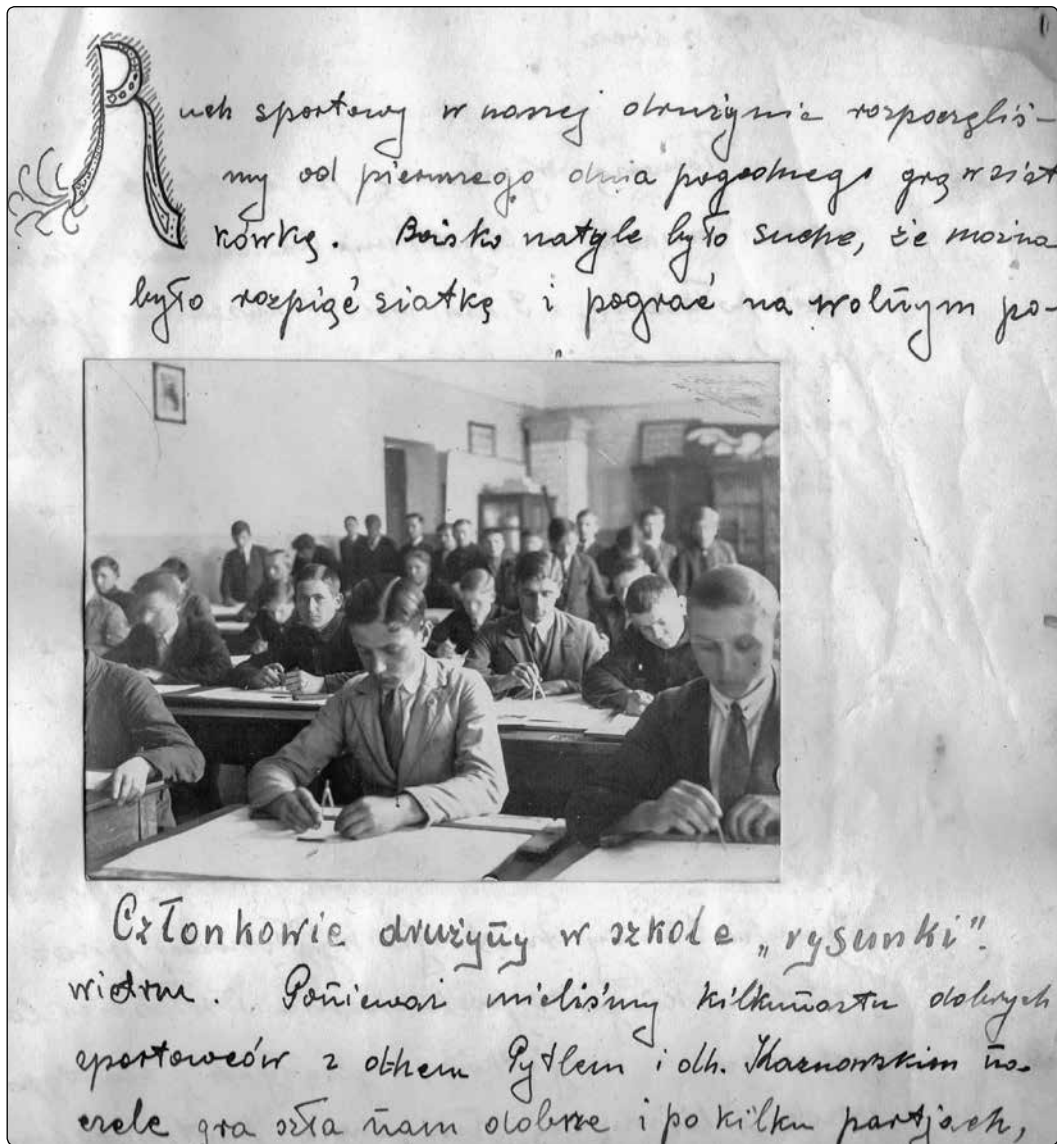 Ruch sportowy w naszej drużynie rozpoczęliś-
my od pierwszego dnia pogodnego grą w siat
kówkę. Boisko natyle było suche, że można
było rozpiąć siatkę i pograć na wolnym po-
Członkowie drużyny w szkole „rysunki”.
wietrzu. Ponieważ mieliśmy kilkunastu dobrych
sportowców z dthem Pytlem i dh. Kaznowskim na
czele gra szła nam dobrze i po kilku partjach,